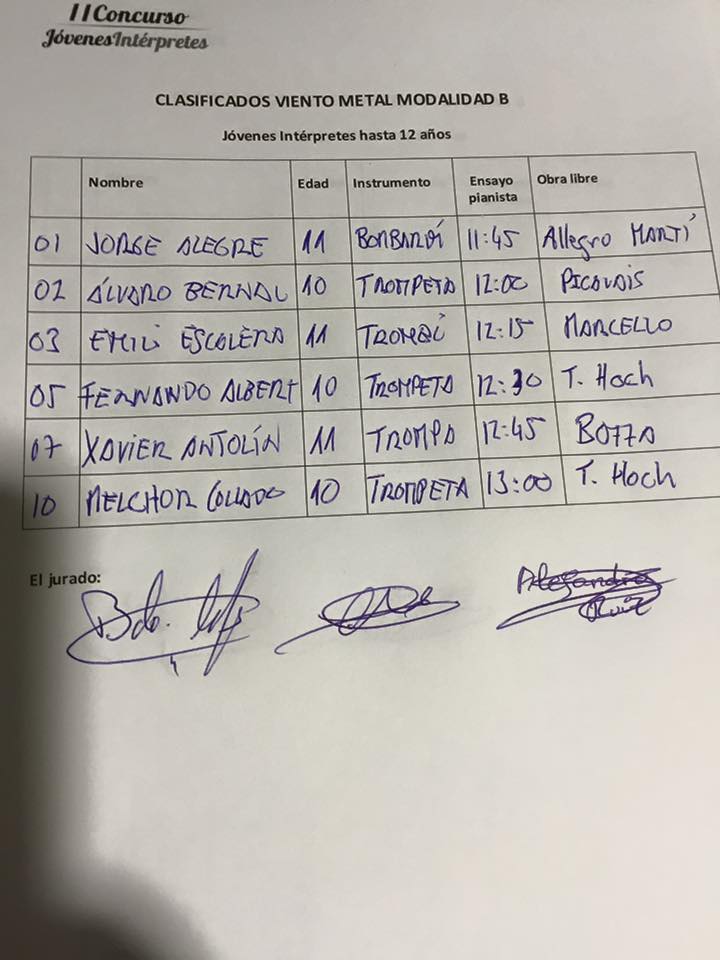 II Concurso
JóvenesIntérpretes
CLASIFICADOS VIENTO METAL MODALIDAD B
Jóvenes Intérpretes hasta 12 años
Nombre Edad Instrumento Ensayo pianista Obra libre
01 JORGE ALEGRE 11 BONBARDÍ 11:45 Allegro MARTÍ
02 ÁLVARO BERNAL 10 TROMPETA 12:00 PICAVAIS
03 EMILI ESCOLERA 11 TROMBÓ 12:15 MARCELLO
05 FERNANDO ALBERT 10 TROMPETA 12:30 T. Hoch
07 XAVIER ANTOLÍN 11 TROMPA 12:45 BOZZA
10 MELCHOR COLLADO 10 TROMPETA 13:00 T. Hoch
El jurado:
Alejandro
Ruiz